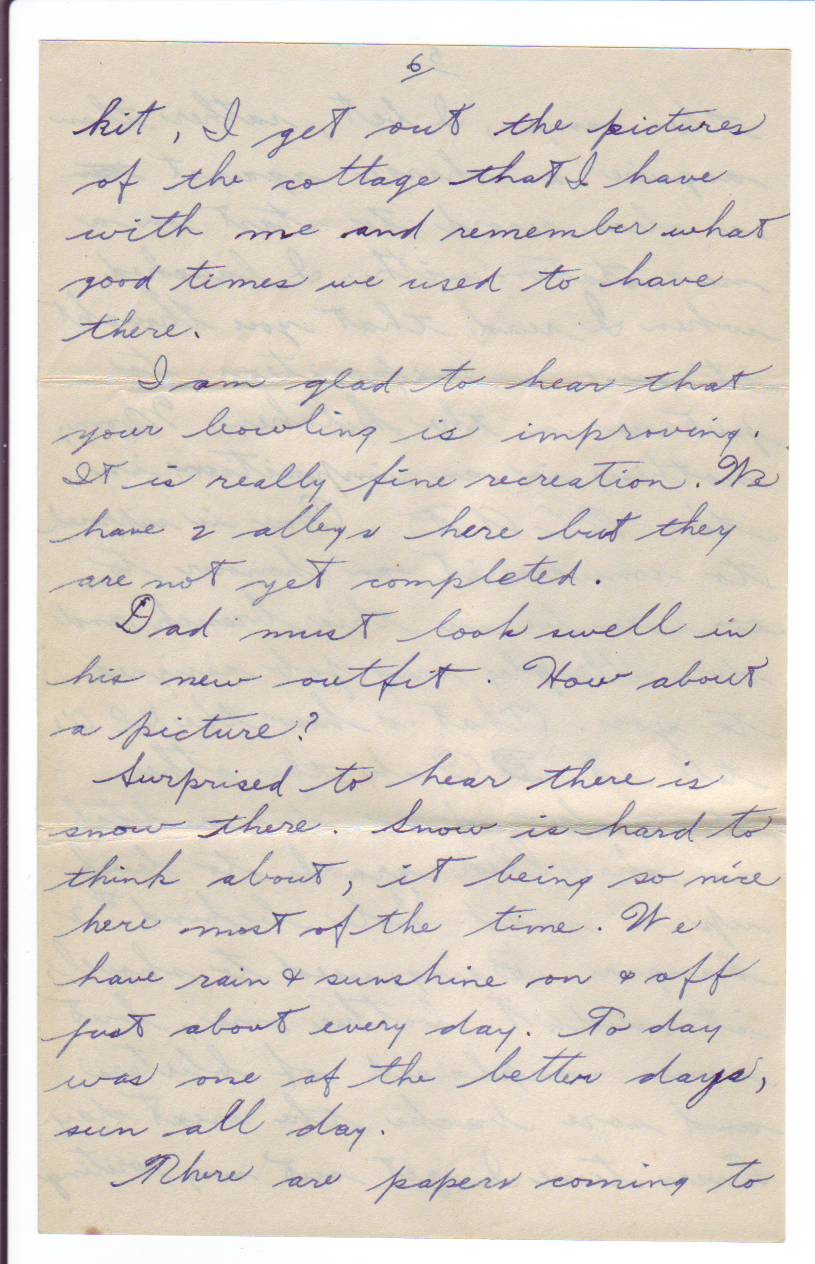 6
kit, I get out the pictures
of the cottage that I have
with me and remember what
good times we used to have
there.
I am glad to hear that
your bowling is improving.
It is really fine recreation. We
have 2 alleys here but they
are not yet completed.
Dad must look swell in
his new outfit. How about
a picture?
Surprised to hear there is
snow there. Snow is hard to
think about, it being so nice
here most of the time. We
have rain & sunshine on & off
just about every day. To day
was one of the better days,
sun all day.
There are papers coming to